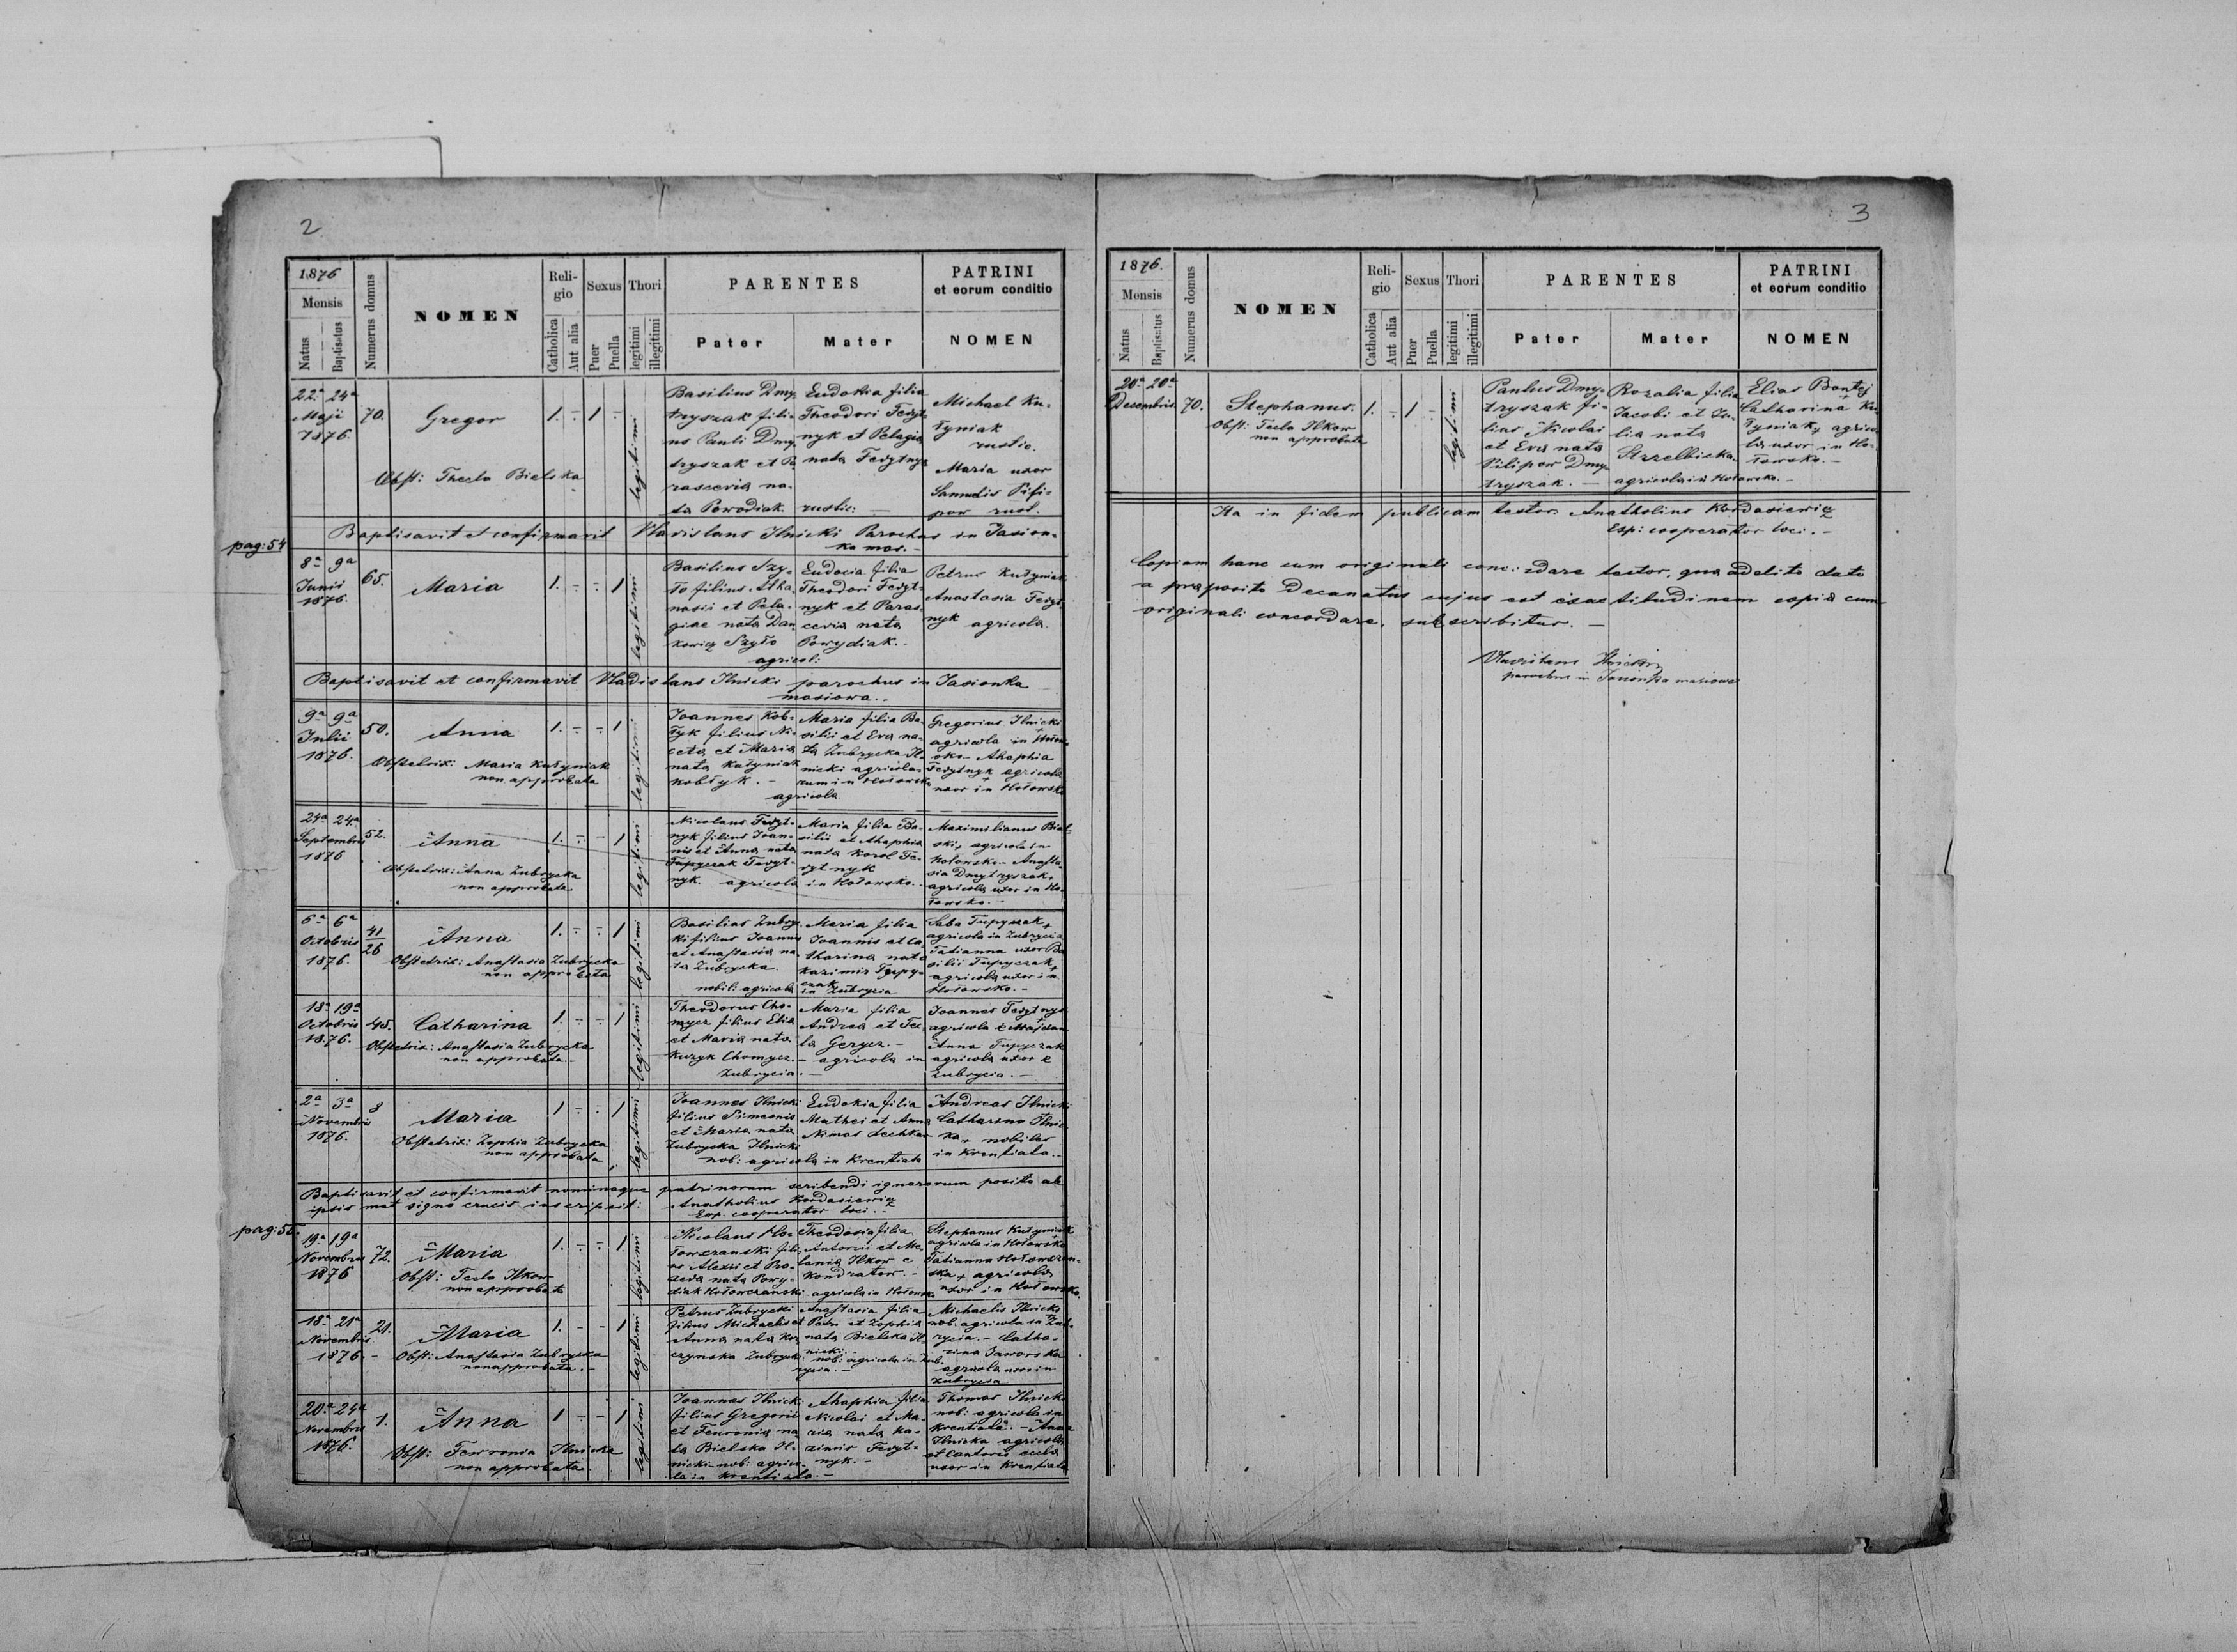 2
1876
Mensis
Natus
Baptisatus
Numerus domus
NOMEN
Reli-
gio
Catholica
Aut alia
Sexus
Puer
Puella
Thori
legitimi
illegitimi
PARENTES
Pater
Mater
PATRINI
et eorum conditio
NOMEN
22a 24a
Maji
1876.
70.
Gregor
1. -:- 1 -
Obst: Thecla Bielska
legitimi
Basilius Dmy-
tryszak fili-
us Pauli Dmy-
tryszak et Pa-
rascevia na-
ta Powodiak
Eudokia filia
Theodori Fedyt-
nyk et Pelagia
nata Fedytnyk
rustic: —
Michael Ku-
tyniak
rustic.
Maria uxor
Samuelis Pili-
pow rust.
Baptisavit et confirmavit Vladislaus Ilnicki Parochus in Jasion-
ka mas. -
pag: 54
8a 9a
Junii
1876.
65.
Maria
1. -:- -:- 1
legitimi
Basilius Szy-
ło filius Atha-
nasii et Pela-
giae nata Dan-
kowicz Szyło
agricol:
Eudocia filia
Theodori Fedyt-
nyk et Paras-
cevia nata
Powydiak. -
Petrus Kutyniak
Anastasia Fedyt-
nyk agricola
Baptisavit et confirmavit Vladislaus Ilnicki parochus in Jasionka
masiowa. -
9a 9a
Julii
1876.
50.
Anna
1. -:- -:- 1
Obstetrix: Maria Kutyniak
non approbata
legitimi
Joannes Kob-
łyk filius Ni-
ceta et Maria
nata Kutyniak
Kobłyk. -
agricola
Maria filia Ba-
silii et Eva na-
ta Zubrycka Il-
nicki agricola-
rum in Hołowsko
Gregorius Ilnicki
agricola in Hołow-
sko. Ahaphia
Fedytnyk agricola
uxor in Hołowsko
24a 24a
Septembris
1876
52.
Anna
1. -:- - 1
Obstetrix: Anna Zubrycka
non approbata
legitimi
Nicolaus Fedyt-
nyk filius Joan-
nis et Anna nata
Tupyczak Fedyt-
nyk. agricola
Maria filia Ba-
silii et Ahaphia
nata Korol Fe-
dytnyk
in Hołowsko. -
Maximilianus Biel-
ski, agricola in
Hołowsko. - Anasta-
sia Dmytryszak +
agricola uxor in Ho-
łowsko. -
6a 6a
Octobris
1876.
41
26
Anna
1. -:- -:- 1
Obstetrix: Anastasia Zubrycka
non approbata
legitimi
Basilius Zubryc-
ki filius Joannis
et Anastasia na-
ta Zubrycka.
nobili: agricola
Maria filia
Joannis et Ca-
tharina nata
Kazimir Tupy-
czak
in Zubrycia
Saba Tupyczak +
agricola in Zubrycia
Tatianna uxor Ba-
silii Tupyczak +
agricola uxor in
Hołowsko. -
18a 19a
Octobris
1876.
45.
Catharina
1. -:- -:- 1
Obstetrix: Anastasia Zubrycka
non approbata. -
legitimi
Theodorus Cho-
mycz filius Elia
et Maria nata
Kuzyk Chomycz. -
Zubrycia. -
Maria filia
Andrea et Tec-
la Gerycz. -
agricola in
Joannes Fedytnyk
agricola e Majdan
Anna Tupyczak
agricola uxor e
Zubrycia. -
2a 3a
Novembris
1876.
8
Maria
1 -:- -:- 1
Obstetrix: Zophia Zubrycka
non approbata
legitimi
Joannes Ilnicki
filius Simeonis
et Maria nata
Zubrycka Ilnicki
nob: agricola in Krentiata
Eudokia filia
Mathei et Anna
Nimas Lechka
Andreas Ilnicki
Catharina Ilnic-
ka + nobiles
in Krentiata. -
Baptisavit et confirmavit nominaque patrinorum scribendi ignarorum posito ab
ipsis met signo crucis inscripsit: Anatholius Kordasiewicz
Exp. cooperator loci. -
pag: 55.
19a 19a
Novembris
1876
72.
Maria
1. -:- -:- 1
Obst: Tecla Ilkow
non approbata
legitimi
Nicolaus Ho-
łowczanski fili-
us Alexii et Pra-
xeda nata Powy-
diak Hołowczanski
Theodosia filia
Antonii et Me-
lania Ilkow e
Kondratow. -
agricola in Hołowsko
Stephanus Kutyniak
agricola in Hołowsko
Tatianna Hołowczan-
ska + agricola
uxor in Hołowsko.
18a 21a
Novembris
1876. -
21.
Maria
1. - - 1
Obst: Anastasia Zubrycka
non approbata. -
legitimi
Petrus Zubrycki
filius Michaelis et
Anna nata Ko-
czynska Zubrycki
Anastasia filia
Petri et Zophia
nata Bielska Il-
nicki. -
nob: agricola in Zub-
rycia. -
Michaelis Ilnicki
nob: agricola in Zub-
rycia. - Catha-
rina Jaworska
agricola uxor in
Zubrycia
20a 24a
Novembris
1876.
1.
Anna
1 -:- - 1
Obst: Fewronia Ilnicka
non approbata.
legitimi
Joannes Ilnicki
filius Gregorii
et Fewronia na-
ta Bielska Il-
nicki nob: agrico-
la in Krentiata. -
Ahaphia filia
Nicolai et Ma-
ria nata Ka-
zimir Fedyt-
nyk. -
Thomas Ilnicki
nob: agricola in
Krentiata. - Anna
Ilnicka agricola
et Cantoris eccla
uxor in Krentiata
3
1876.
Mensis
Natus
Baptisatus
Numerus domus
NOMEN
Reli-
gio
Catholica
Aut alia
Sexus
Puer
Puella
Thori
legitimi
illegitimi
PARENTES
Pater
Mater
PATRINI
et eorum conditio
NOMEN
20a 20a
Decembris.
70.
Stephanus.
1. -:- 1 -
Obst: Tecla Ilkow
non approbata
legitimi
Paulus Dmy-
tryszak fi-
lius Nicolai
et Eva nata
Pilipow Dmy-
tryszak. —
Rozalia filia
Jacobi et Ju-
lia nata
Strzelbicka
agricola in Hołowsko. -
Elias Bontej
Catharina Ku-
tyniak, agrico-
la uxor in Ho-
łowsko. -
Ita in fidem publicam testor. Anatholius Kordasiewicz
Exp: cooperator loci. -
Copiam hanc cum originali concordare testor, qua adelito dato
a praposito Decanatus cujus est exactitudinem copia cum
originali concordare, subscribitur. —
Vladislaus Ilnicki
parochus in Jasionka masiowa